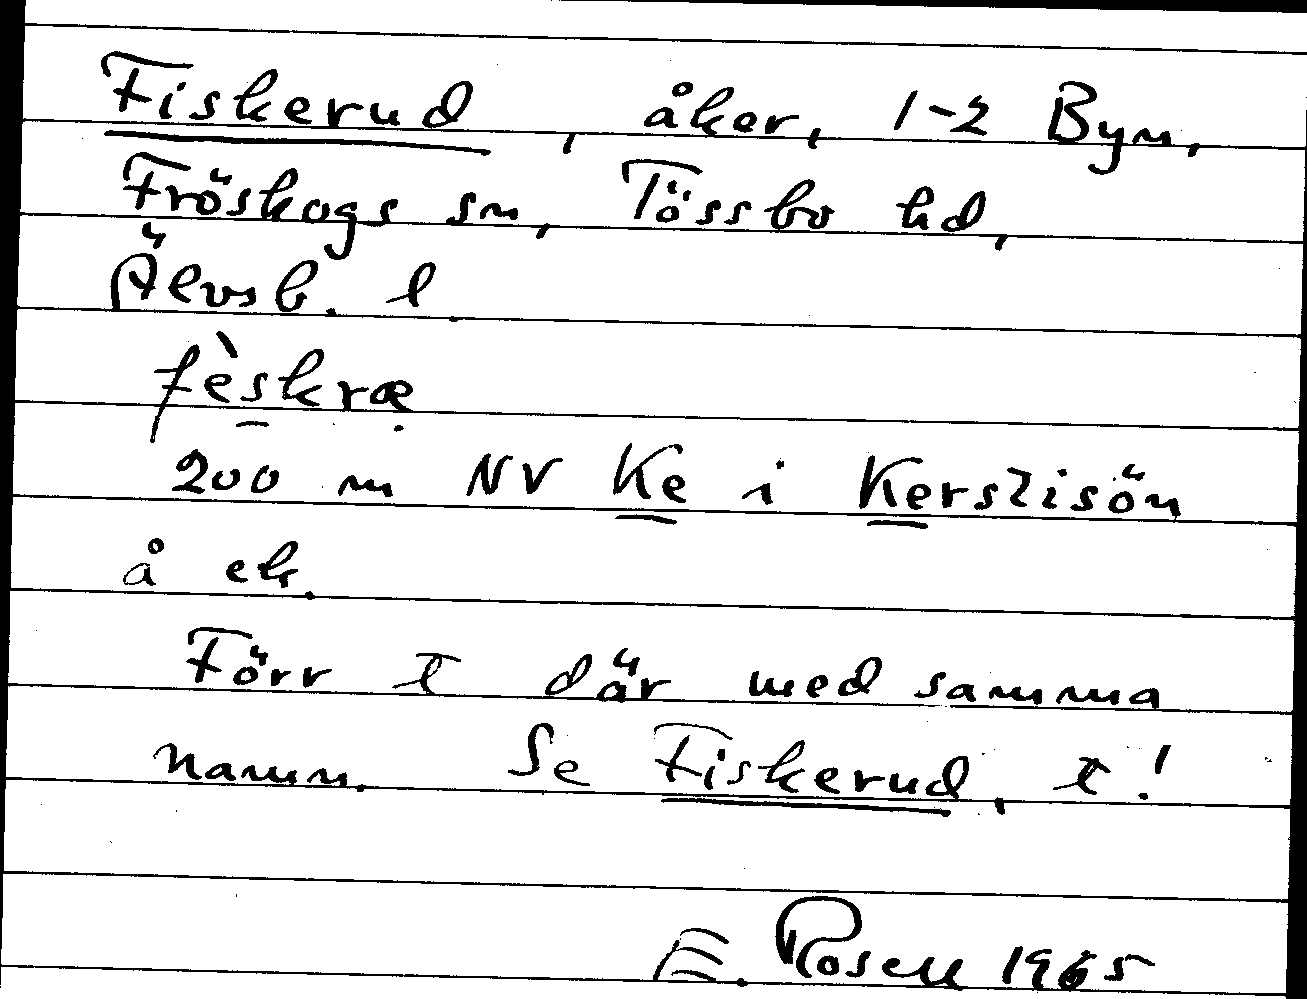 Fiskerud, åker, 1-2 Byn,
Fröskogs sn, Tössbo hd,
Älvsb. l.
fèskræ
200 m NV Ke i Kerstisön
å ek.
Förr t där med samma
namn. Se Fiskerud, t!
E. Rosell 1965